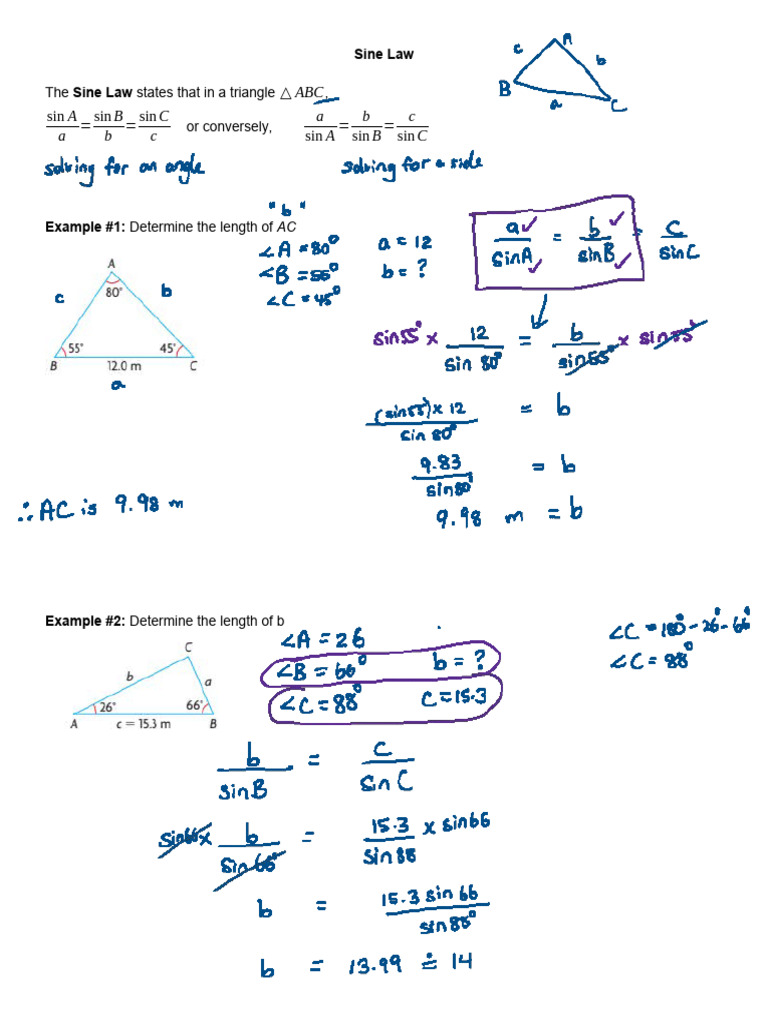 Sine Law
A
c
b
B
a
C
The Sine Law states that in a triangle △ ABC,
sin A / a = sin B / b = sin C / c or conversely, a / sin A = b / sin B = c / sin C
solving for an angle solving for a side
"b"
Example #1: Determine the length of AC
∠A = 80° a = 12
∠B = 55° b = ?
∠C = 45°
a / sinA = b / sinB = c / sinC
A
80°
c b
55° 45°
B 12.0 m C
a
sin55° × 12 / sin 80° = b / sin55° × sin55°
(sin55°) × 12 / sin 80° = b
9.83 / sin80° = b
9.98 m = b
∴ AC is 9.98 m
Example #2: Determine the length of b
∠A = 26
∠B = 66° b = ?
∠C = 88° C = 15.3
∠C = 180° - 26° - 66°
∠C = 88°
C
b a
26° 66°
A c = 15.3 m B
b / sinB = c / sin C
sin66 × b / sin 66° = 15.3 / sin88 × sin66
b = 15.3 sin 66 / sin88°
b = 13.99 ≐ 14